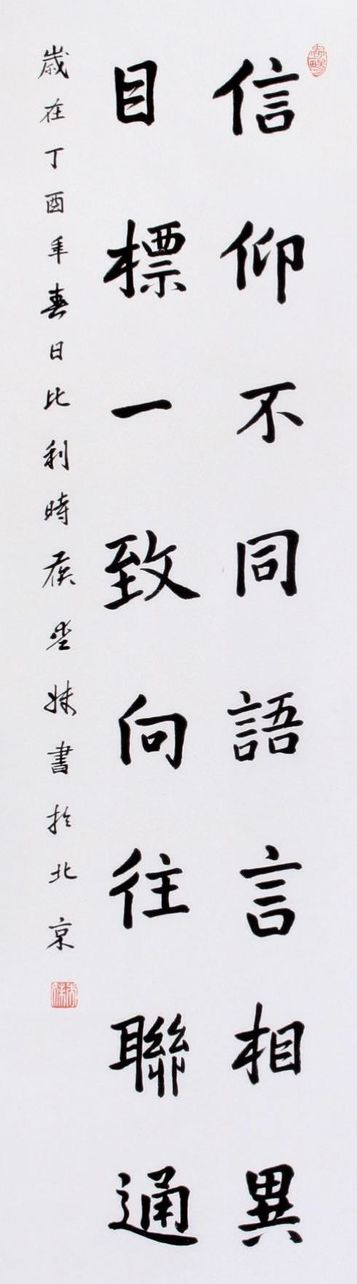 信仰不同語言相異
目標一致向往聯通
歲在丁酉年春日比利時侯坐妹書於北京